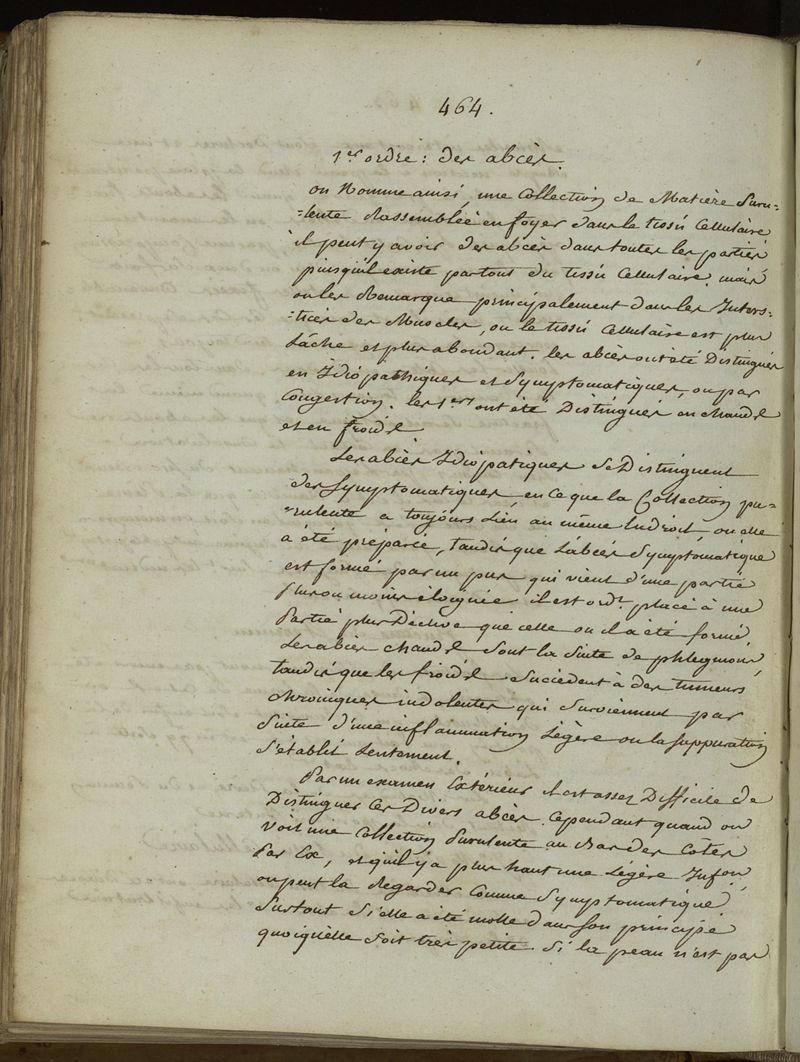 464.
1er ordre: des abcès.
on Nomme ainsi, une Collection de Matière Puru-
-lente Rassemblée en foyer dans le tissu Cellulaire
il peut y avoir des abcès dans toutes les parties
puisqu'il existe partout du tissu Cellulaire. mais
on les Remarque principalement dans les Inters-
-tices des Muscles, ou le tissu Cellulaire est plus
Lâche et plus abondant. les abcès ont été Distingués
en Idiopathiques et Symptomatiques, ou par
Congestion. les 1ers ont été Distingués en chauds
et en froids
Les abcès Idiopatiques se Distinguent
des Symptomatiques en ce que la Collection pu-
-rulente a toujours Lieu au même Endroit, ou elle
a été préparée, tandis que L'abcès Symptomatique
est formé par un pus qui vient d'une partie
Plus ou moins éloignée il est ordt placé à une
Partie plus Déclive que celle ou il a été formé
Les abcès chauds sont la suite de phlegmons,
tandis que les froids succèdent à des tumeurs
chroniques indolentes qui surviennent par
Suite d'une inflammation Légère ou la suppuration
S'établit Lentement.
Par un examen Extérieur il est assez Difficile de
Distinguer Ces Divers abcès. Cependant quand on
voit une Collection Purulente au Bas des Côtes
Par Ex, et qu'il y a plus haut une Légère
on peut la Regarder Comme Symptomatique
Surtout Si elle a été molle dans son principe
quoiquelle soit très petite. Si la peau n'est pas